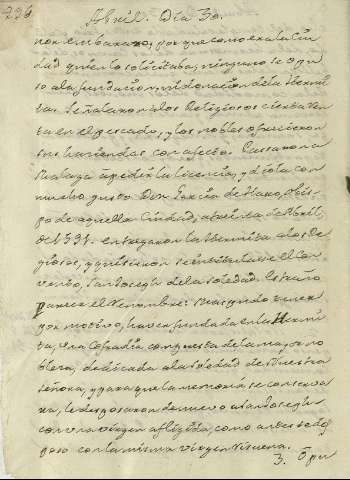 236
Abril. Dia 30.
nor embarazo, por que como era la Ciu
dad quien lo solicitaba, ninguno se opu
so a la fundacion, ni donacion de la Hermi
ta. Señalaron a los Religiosos cierta ren
ta en el pescado, y los nobles ofrecieron
sus haciendas con afecto. Passaron a
Malaga a pedir la licencia, y diola con
mucho gusto Don Garcia de Haro, Obis
po de aquella Ciudad, a de Abril
de entregaron la Hermita a los Reli
giosos, y quisieron se intitulasse el Con
vento, San Joseph de la Soledad. Estraño
parece el Renombre: mas pudo tener
por motivo, haver fundada en la Hermi
ta, una Cofradia compuesta de la mayor no
bleza, dedicada a la Soledad de Nuestra
Señora, y para que la memoria se conserva
ra, le desposaron de nuevo a San Joseph
con una virgen afligida, como antes es
poso con la misma virgen risueña.
3. O por